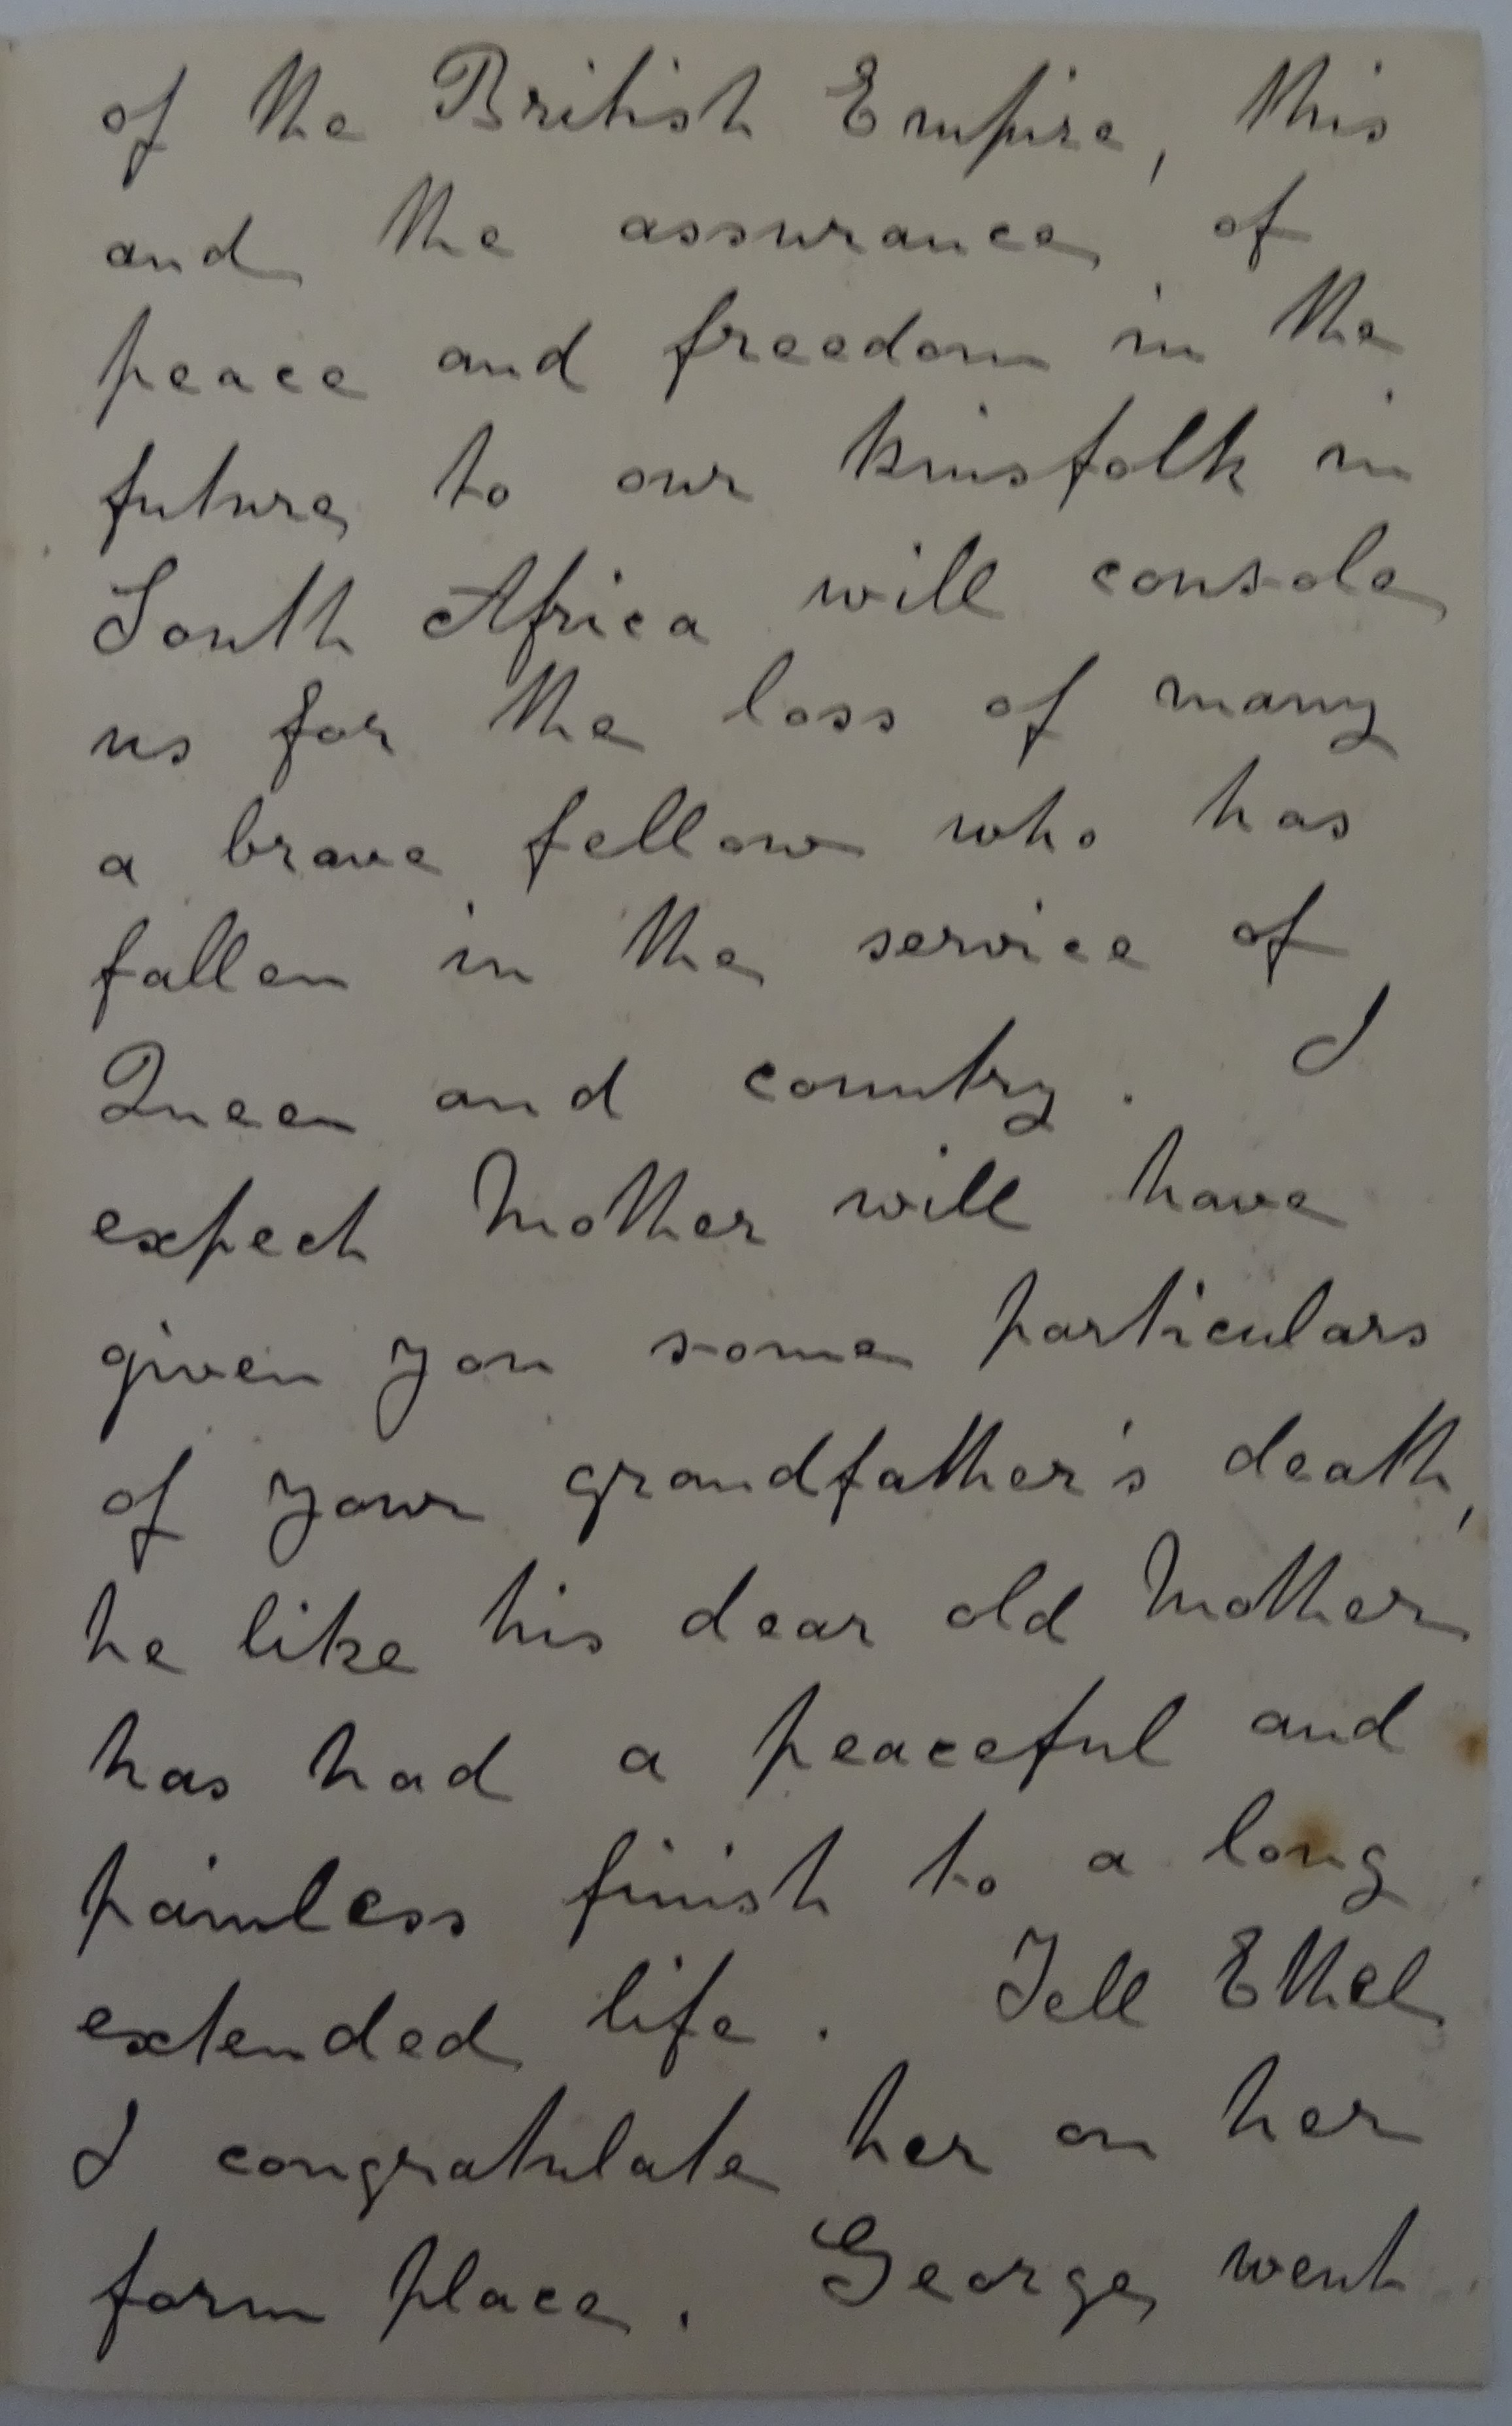 of the British Empire, this
and the assurance of
peace and freedom in the
future to our kinsfolk in
South Africa will console
us for the loss of many
a brave fellow who has
fallen in the service of
Queen and country. I
expect Mother will have
given you some particulars
of your grandfather's death,
he like his dear old Mother
has had a peaceful and
painless finish to a long
extended life. Tell Ethel
I congratulate her on her
form place. George went